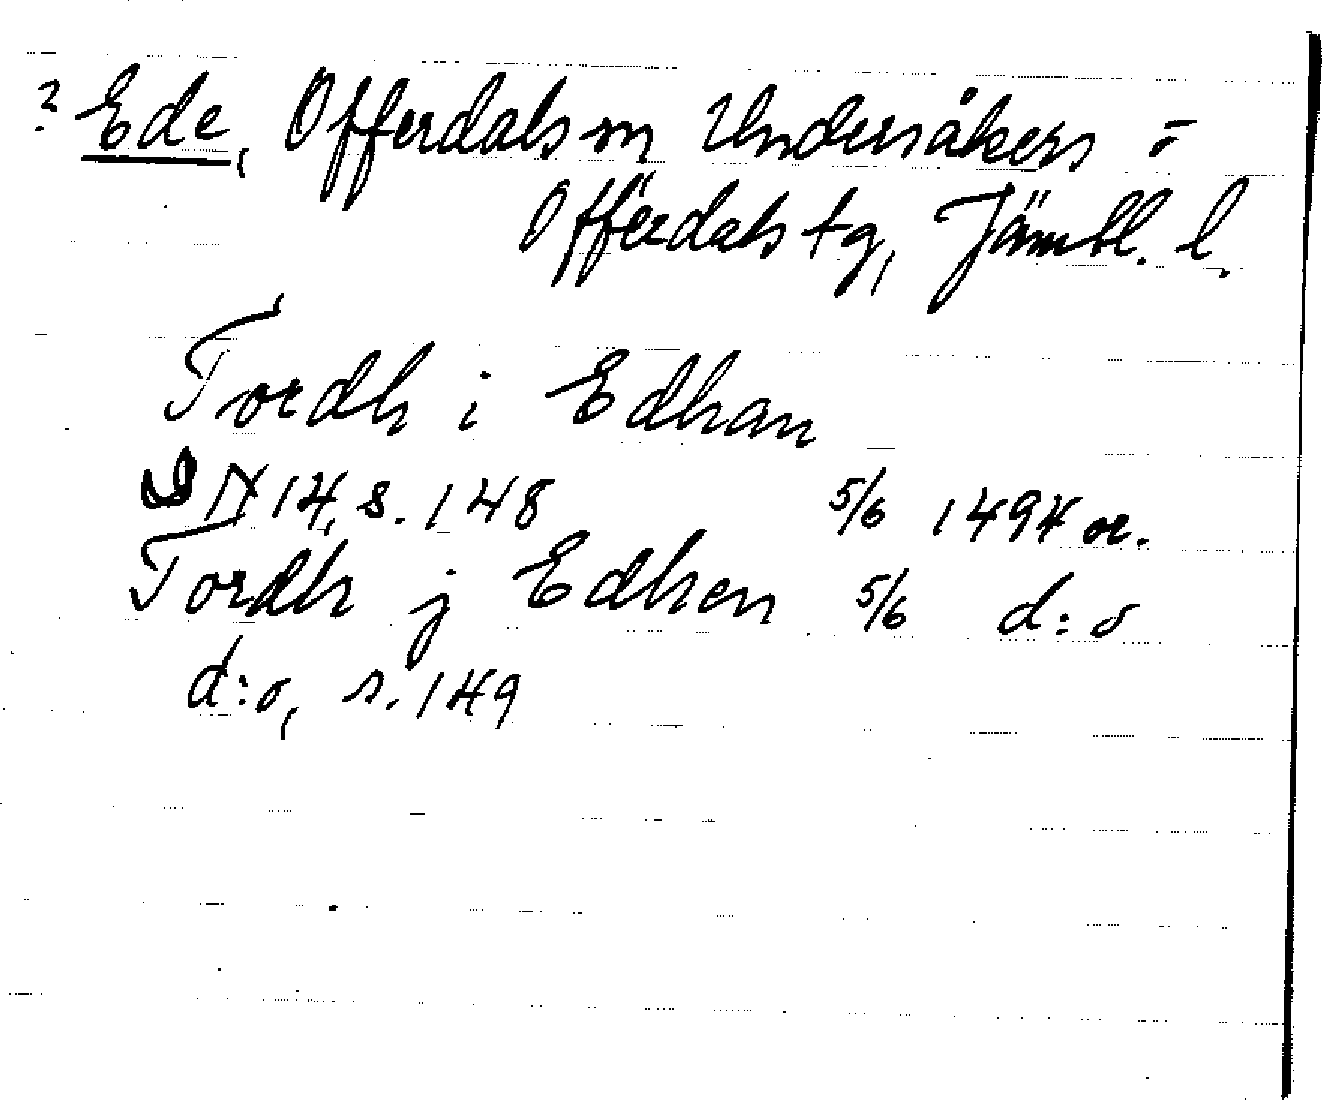 ? Ede, Offerdals sn Undersåkers =
Offerdals tg, Jämtl. l.
Tordh i Edhan
DN 14, s. 148 5/6 1494 or.
Tordh j Edhen 5/6 d:o
d:o, s. 149